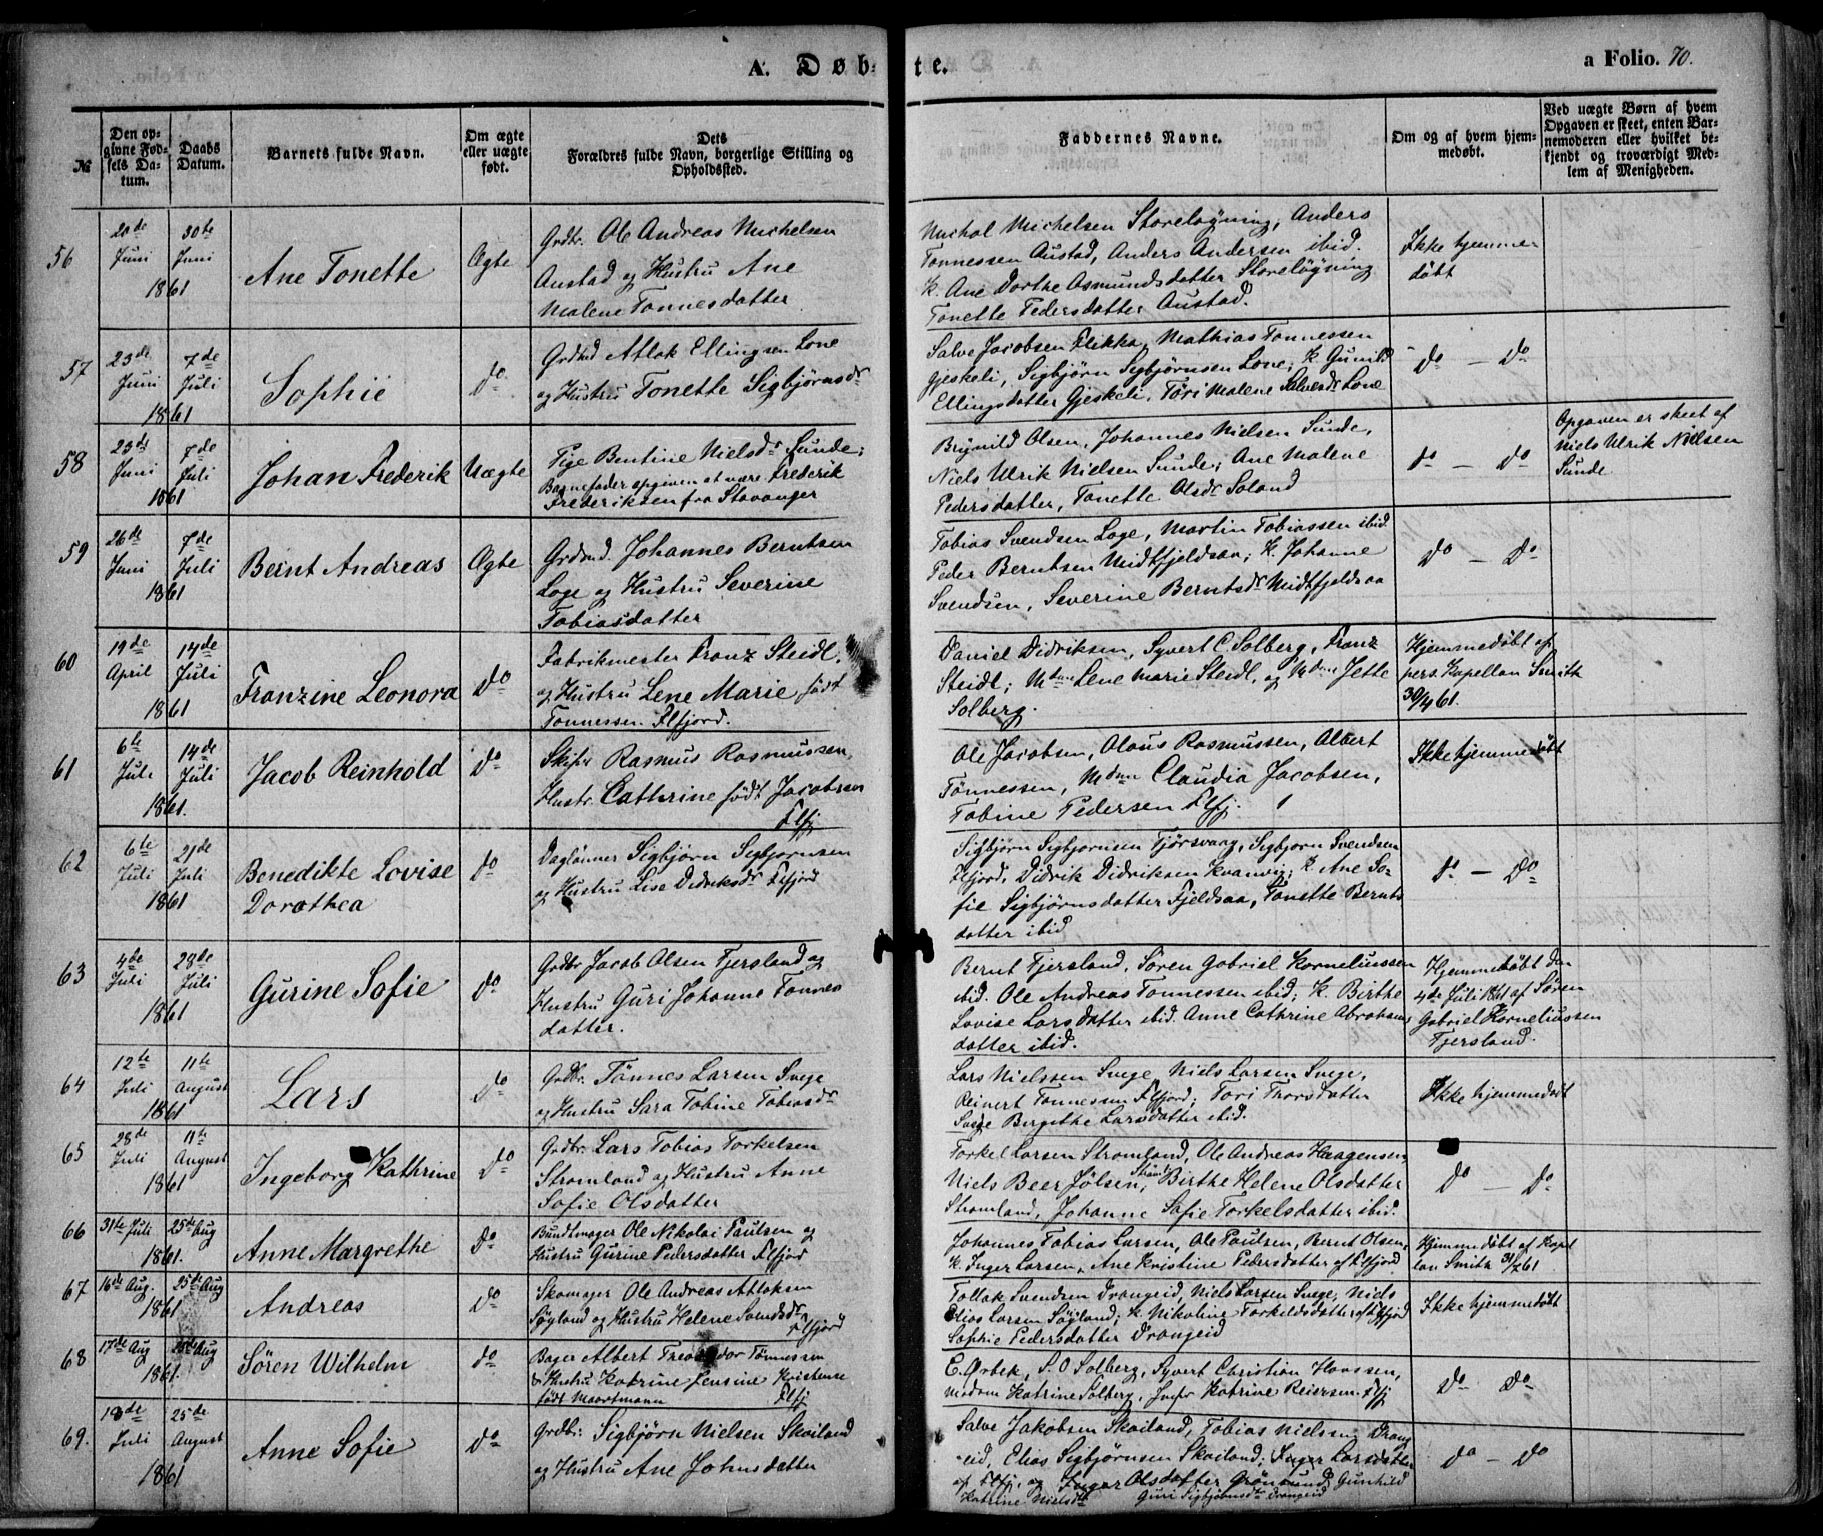 A. Døbte.
a Folio. 70.
№
Den opgivne Fødsels Datum.
Daabs Datum.
Barnets fulde Navn.
Om ægte eller uægte født.
Dets Forældres fulde Navn, borgerlige Stilling og Opholdssted.
Faddernes Navne.
Om og af hvem hjemmedøbt.
Ved uægte Børn af hvem Opgaven er skeet, enten Barnemoderen eller hvilket bekjendt og troværdigt Medlem af Menigheden.
56
20de Juni 1861
30te Juni
Ane Tonette
Ægte
Grdbr. Ole Andreas Michelsen
Austad og Hustru Ane
Malene Tønnesdatter
Michal Michelsen Storeløgning, Anders
Tønnessen Austad, Anders Andersen ibid.
K. Ane Dorthe Asmundsdatter Storeløgning
Tonette Pedersdatter Austad.
Ikke hjemme
døbt
57
23de Juni 1861
7de Juli
Sophie
do
Grdmd Atlak Ellingsen Lone
og Hustru Tonette Sigbjørnsdr
Salve Jacobsen Flikka, Mathias Tønnessen
Gjeskeli, Sigbjørn Sigbjørnsen Lone, K. Gunild
Ellingsdatter Gjeskeli, Tori Malene Salvesdr Lone
do – do
58
23de Juni 1861
7de Juli
Johan Frederik
Uægte
Pige Bentine Nielsdr Sunde;
Barnefader opgiven at være Frederik
Frederiksen fra Stavanger
Brynild Olsen, Johannes Nielsen Sunde,
Niels Ulrik Nielsen Sunde; Ane Malene
Pedersdatter, Tonette Olsdr Soland
do – do
Opgaven er skeet af
Niels Ulrik Nielsen
Sunde
59
26de Juni 1861
7de Juli
Bernt Andreas
Ægte
Grdmd. Johannes Berntsen
Loge og Hustru Severine
Tobiasdatter
Tobias Svendsen Loge, Martin Tobiassen ibid
Peder Berntsen Midtfjeldsaa; K. Johanne
Svendsen, Severine Berntsdr Midtfjeldsaa
do – do
60
19de April 1861
14de Juli
Franzine Leonora
do
Fabrikmester Franz Steidl,
og Hustru Lene Marie født
Tønnessen. Flfjord.
Daniel Didriksen, Syvert C. Solberg, Franz
Steidl; Mdme Lene Marie Steidl, og Mdme Jette
Solberg.
Hjemmedøbt af
pers. Kapellan Smith
30/4 61.
61
6te Juli 1861.
14de Juli
Jacob Reinhold
do
Skipr Rasmus Rasmussen,
Hustr. Cathrine født Jacobsen
Flfj
Ole Jacobsen, Olaus Rasmussen, Albert
Tønnessen, Mdme Claudia Jacobsen,
Tobine Pedersen Flfj.
Ikke hjemmedøbt
62
6te Juli 1861
21de Juli
Benedikte Lovise
Dorothea
do
Daglønner Sigbjørn Sigbjørnsen
og Hustru Lise Didriksdr Flfjord
Sigbjørn Sigbjørnsen Tjørsvaag, Sigbjørn Svendsen
Flfjord, Didrik Didriksen Kvanvig; K. Ane So-
fie Sigbjørnsdatter Fjeldsaa, Tonette Bernts
datter ibid
do – do
63
4de Juli 1861
28de Juli
Gurine Sofie
do
Grdbr Jacob Olsen Tjersland og
Hustru Guri Johanne Tønnes
datter.
Bernt Tjersland, Søren Gabriel Korneliussen
ibid. Ole Andreas Tønnessen ibid; K. Birthe
Lovise Larsdatter ibid. Anne Cathrine Abrahams
datter ibid.
Hjemmedøbt den
4de Juli 1861 af Søren
Gabriel Korneliussen
Tjersland.
64
12te Juli 1861
11te August
Lars
do
Grdbr. Tønnes Larsen Svege
og Hustru Sara Tobine Tobiasdr
Lars Nielssen Svege, Niels Larsen Svege,
Reinert Tønnessen Flfjord; Tori Thorsdatter
Svege Bergithe Larsdatter ibid.
Ikke hjemmedøbt
65
28de Juli 1861
11te August
Ingeborg Kathrine
do
Grdbr. Lars Tobias Torkelsen
Strømland og Hustru Anne
Sofie Olsdatter
Torkel Larsen Strømland, Ole Andreas Haagensen,
Niels Beer Jølsen, Birthe Helene Olsdatter
Strømland, Johanne Sofie Torkelsdatter ibid.
do – do
66
31te Juli 1861.
25de Aug
Anne Margrethe
do
Bundtmager Ole Nikolai Paulsen og
Hustru Gurine Pedersdatter Flfjord
Johannes Tobias Larsen, Ole Paulsen, Bernt Olsen,
K. Inger Larsen, Ane Kristine Pedersdatter af Flfjord
Hjemmedøbt af Kapel
lan Smith 31/7 61
67
16de Aug. 1861
25de Aug
Andreas
do
Skomager Ole Andreas Atlaksen
Søyland og Hustru Helene Svendsdr
Flfjord
Tollak Svendsen Drangeid, Niels Larsen Svege, Niels
Elias Larsen Søyland; K. Nikoline Torkeldsdatter af Flfjord
Sophie Pedersdatter Drangeid
Ikke hjemmedøbt
68
17de Aug 1861
25de Aug
Søren Wilhelm
do
Bager Albert Treodor Tønnessen
& Hustru Katrine Jensine Kristense
født Moortmann Flfj
E. Ørbek, S. O Solberg, Syvert Christian Hanssen,
Madam Katrine Solberg, Jnfr Katrine Reiersen Flfj
do do
69.
18de Juli 1861
25de August
Anne Sofie
do
Grdbr. Sigbjørn Nielsen Skailand
og Hustru Ane Johnsdatter
Salve Jakobsen Skailand, Tobias Nielsen Drang
-eid, Elias Sigbjørnsen Skailand; Inger Larsdatter
af Flfj, og Inger Olsdatter Grønsund, Gunhild
Katrine Nielsdtr Guri Sigbjørnsdtr Drangeid
do – do